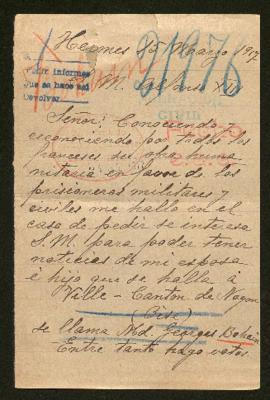 Hermes 25 Marzo 1917
21976
Pedir informes
Que se hace así
Devolver
S. M. Alfonso XIII
CIVIL
Señor: Conociendo y
reconociendo por todos los
franceses su obra huma
nitaria en favor de los
prisioneros militares y
civiles me hallo en el
caso de pedir se interese
S. M. para poder tener
noticias de mi esposa
é hijo que se halla á
Ville - Canton de Noyon
(Oise)
se llama Md. Georges
Entre tanto hago votos